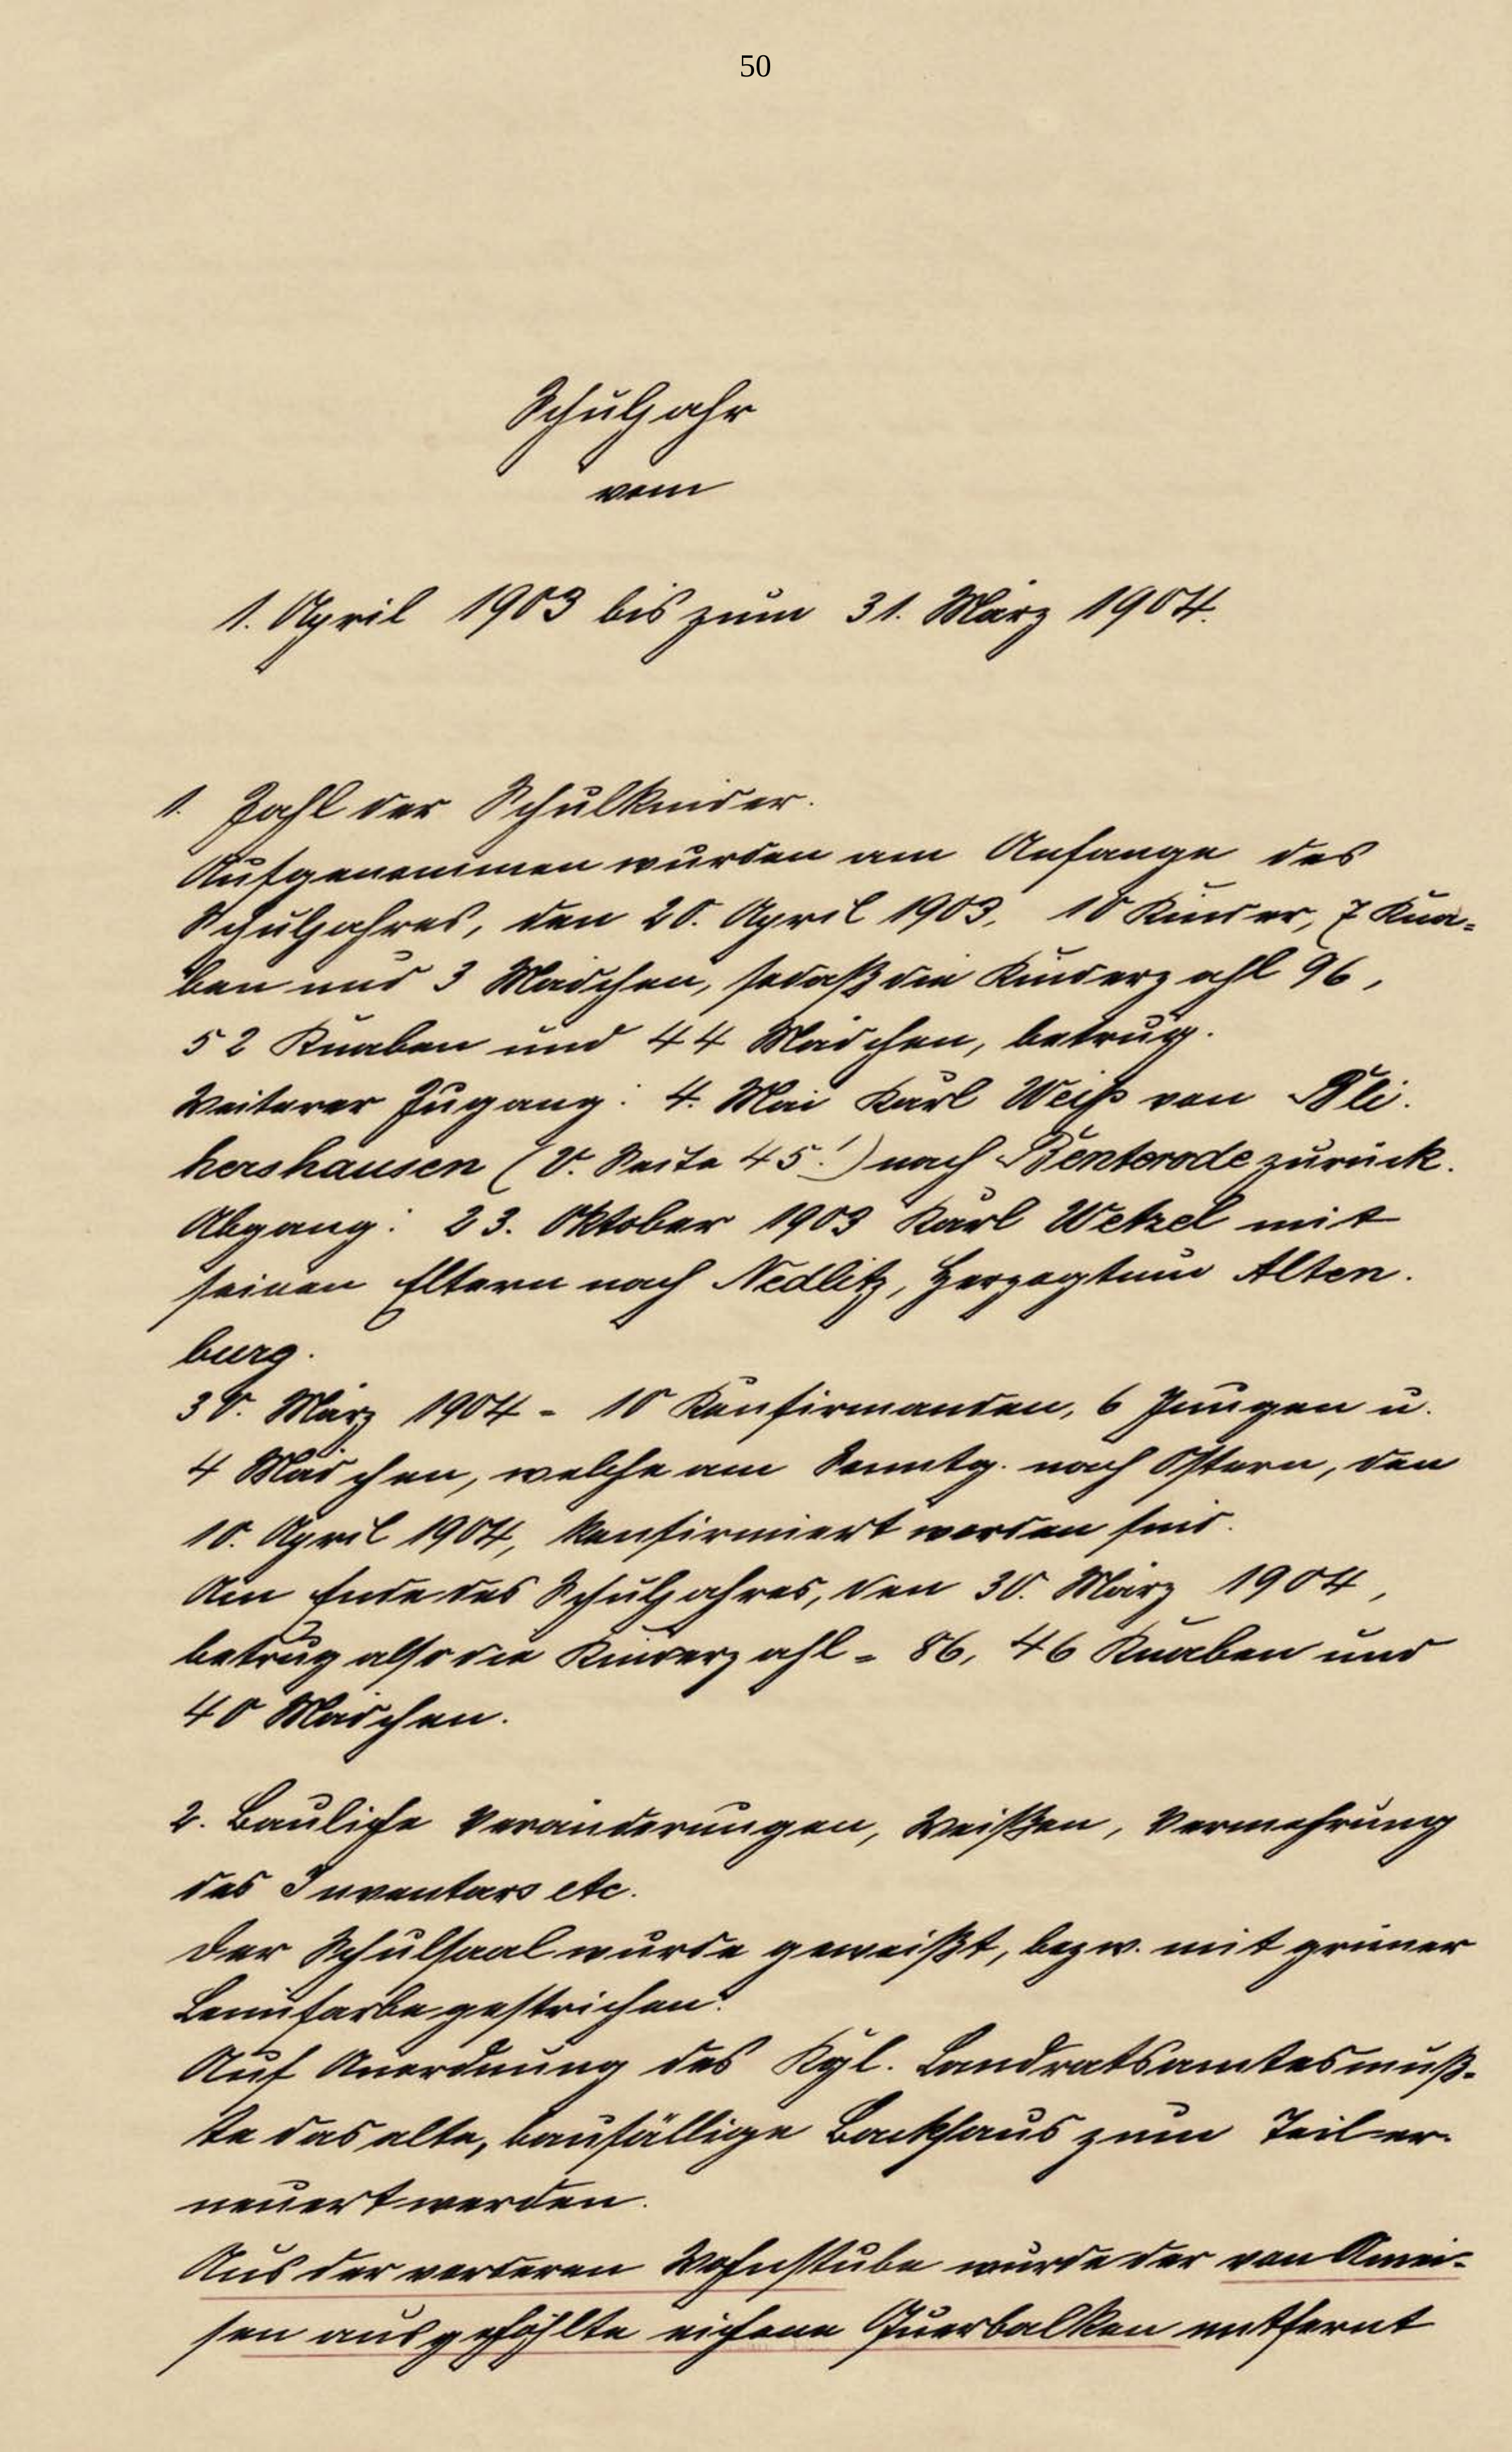 50
Schuljahr
vom
1. April 1903 bis zum 31. März 1904.
1. Zahl der Schulkinder.
Aufgenommen wurden am Anfange des
Schuljahres, den 20. April 1903, 10 Kinder, 7 Kna-
ben und 3 Mädchen, sodaß die Kinderzahl 96,
52 Knaben und 44 Mädchen, betrug.
Weiterer Zugang: 4. Mai Karl Weiß von
hershausen (V. Seite 45!) nach Benterode zurück.
Abgang: 23. Oktober 1903 Karl Wetzel mit
seinen Eltern nach Nedlitz, Herzogtum Alten-
burg.
30. März 1904 = 10 Konfirmanden, 6 Jungen u.
4 Mädchen, welche am Sonntg. nach Ostern, den
10. April 1904, konfirmiert worden sind.
Am Ende des Schuljahres, den 30. März 1904,
betrug also die Kinderzahl = 86, 46 Knaben und
40 Mädchen.
2. Bauliche Veränderungen, Weißen, Vermehrung
des Inventars etc.
Der Schulsaal wurde geweißt, bezw. mit grüner
Leimfarbe gestrichen.
Auf Anordnung des Kgl. Landratsamtes muß-
te das alte, baufällige Backhaus zum Teil er-
neuert werden.
Aus der vorderen Wohnstube wurde der von Amei-
sen ausgehöhlte eichene Querbalken entfernt